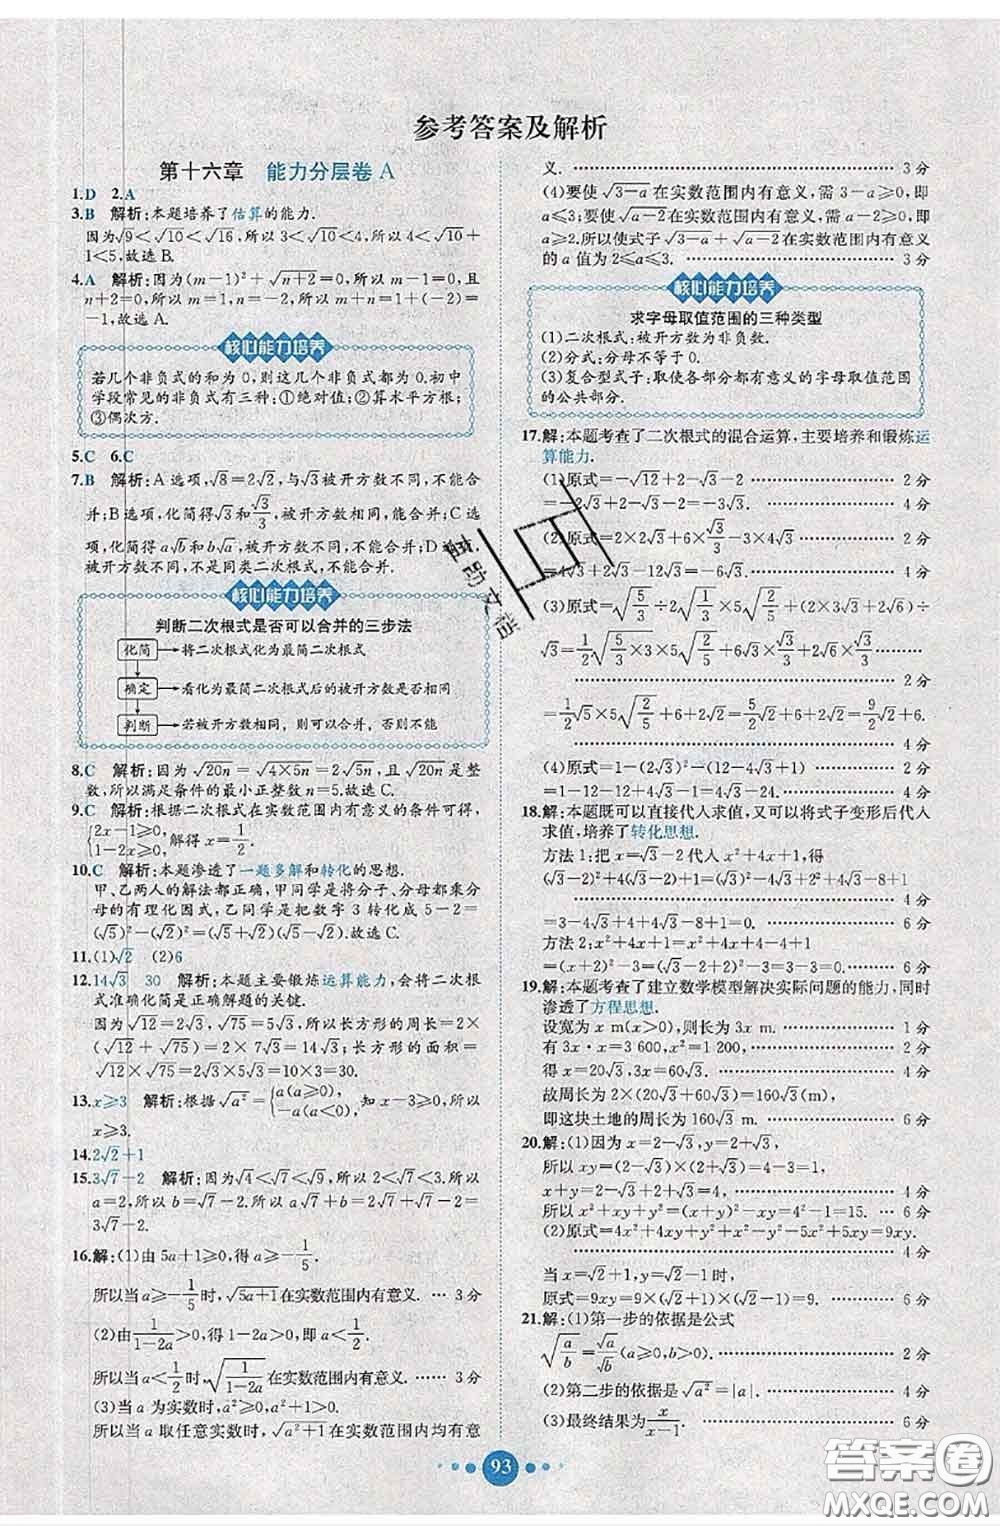 参考答案及解析
第十六章 能力分层卷 A
1.D 2.A
3.B 解析:本题培养了估算的能力.
因为√9<√10<√16,所以3<√10<4,所以4<√10+
1<5,故选B.
4.A 解析:因为(m-1)²+√(n+2)=0,所以m-1=0,且
n+2=0,所以m=1,n=-2,所以m+n=1+(-2)=
-1,故选A.
核心能力培养
若几个非负式的和为0,则这几个非负式都为0.初中
学段常见的非负式有三种:①绝对值;②算术平方根;
③偶次方.
5.C 6.C
7.B 解析:A选项,√8=2√2,与√3被开方数不同,不能合
并;B选项,化简得√3和√3/3,被开方数相同,能合并;C选
项,化简得a√b和b√a,被开方数不同,不能合并;D选项,
被开方数不同,不是同类二次根式,不能合并.
核心能力培养
判断二次根式是否可以合并的三步法
化简→将二次根式化为最简二次根式
确定→看化为最简二次根式后的被开方数是否相同
判断→若被开方数相同,则可以合并,否则不能
8.C 解析:因为√(20n)=√(4×5n)=2√(5n),且√(20n)是整
数,所以满足条件的最小正整数n=5.故选C.
9.C 解析:根据二次根式在实数范围内有意义的条件可得,
{2x-1≥0, 1-2x≥0, 解得x=1/2.
10.C 解析:本题渗透了一题多解和转化的思想.
甲、乙两人的解法都正确,甲同学是将分子、分母都乘分
母的有理化因式,乙同学是把数字3转化成5-2=
(√5)²-(√2)²=(√5+√2)(√5-√2).故选C.
11.(1)√2 (2)6
12.14√3 30 解析:本题主要锻炼运算能力,会将二次根
式准确化简是正确解题的关键.
因为√12=2√3,√75=5√3,所以长方形的周长=2×
(√12+√75)=2×(2√3+5√3)=14√3;长方形的面积=
√12×√75=2√3×5√3=10×3=30.
13.x≥3 解析:根据√a²={a(a≥0), -a(a<0), 知x-3≥0,所以
x≥3.
14.2√2+1
15.3√7-2 解析:因为√4<√7<√9,所以2<√7<3.所以
a=2,所以b=√7-2.所以2√7+b=2√7+√7-2=
3√7-2.
16.解:(1)由5a+1≥0,得a≥-1/5.
所以当a≥-1/5时,√(5a+1)在实数范围内有意义. … 3分
(2)由1/(1-2a)>0,得1-2a>0,即a<1/2.
所以当a<1/2时,√(1/(1-2a))在实数范围内有意义. … 3分
(3)当a为实数时,a²≥0,a²+1>0.
所以当a取任意实数时,√(a²+1)在实数范围内均有意
义. … 3分
(4)要使√(3-a)在实数范围内有意义,需3-a≥0,即
a≤3;要使√(a-2)在实数范围内有意义,需a-2≥0,即
a≥2.所以使式子√(3-a)+√(a-2)在实数范围内有意义
的a值为2≤a≤3. … 3分
核心能力培养
求字母取值范围的三种类型
(1)二次根式:被开方数为非负数.
(2)分式:分母不等于0.
(3)复合型式子:取使各部分都有意义的字母取值范围
的公共部分.
17.解:本题考查了二次根式的混合运算,主要培养和锻炼运
算能力.
(1)原式=-√12+2√3-√3 … 2分
=-2√3+2√3-√3=-√3. … 4分
(2)原式=2×2√3+6×√3/3-3×4√3 … 2分
=4√3+2√3-12√3=-6√3. … 4分
(3)原式=√(5/3)÷2√(1/3)×5√(2/5)+(6√3+2√6)÷
√3=1/2√(5/3×3)×5√(2/5)+6√3×√3/3+2√6×√3/3
… 2分
=1/2√5×5√(2/5)+6+2√2=5/2√2+6+2√2=9/2√2+6.
… 4分
(4)原式=1-(2√3)²-(12-4√3+1) … 2分
=1-12-12+4√3-1=4√3-24. … 4分
18.解:本题既可以直接代入求值,又可以将式子变形后代入
求值,培养了转化思想.
方法1:把x=√3-2代入x²+4x+1,得
(√3-2)²+4(√3-2)+1=3-4√3+4+4√3-8+1
… 4分
=3-4√3+4+4√3-8+1=0. … 6分
方法2:x²+4x+1=(x²+4x+4-4)+1
=(x+2)²-3=(√3-2+2)²-3=3-3=0. … 6分
19.解:本题考查了建立数学模型解决实际问题的能力,同时
渗透了方程思想.
设宽为x m(x>0),则长为3x m. … 1分
有3x·x=3 600,x²=1 200, … 2分
得x=20√3,3x=60√3. … 4分
故周长为2×(20√3+60√3)=160√3(m),
即这块土地的周长为160√3 m. … 6分
20.解:(1)因为x=2-√3,y=2+√3,
所以xy=(2-√3)×(2+√3)=1,
x+y=2-√3+2+√3=4, … 4分
所以x²+xy+y²=(x+y)²-xy=4²-1=15. … 6分
(2)原式=4x²+4xy+y²+x²-y²-5x²+5xy=9xy.
… 4分
当x=√2+1,y=√2-1时,
原式=9xy=9×(√2+1)×(√2-1)=9. … 6分
21.解:(1)第一步的依据是公式
√(a/b)=√a/√b(a≥0,b>0). … 2分
(2)第二步的依据是√a²=|a|. … 4分
(3)最终结果为x/(x-1). … 6分
93
互助文档
答案圈
MXQE.COM